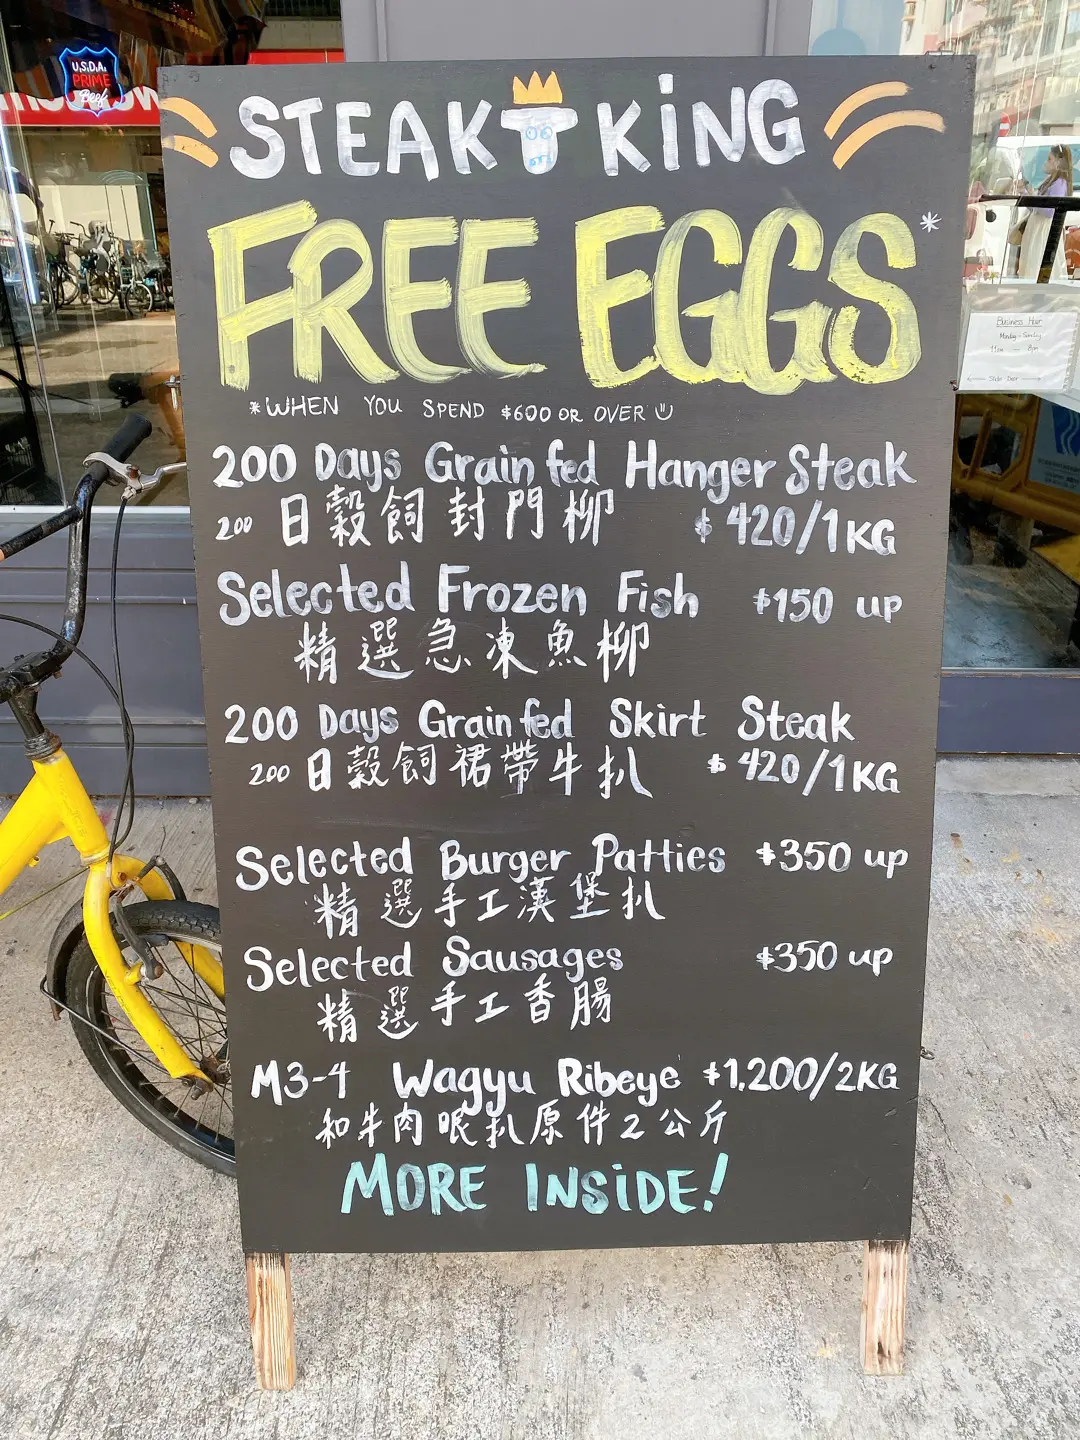 U.S.D.A.
PRIME
Beef
STEAK KiNG
FREE EGGS*
*WHEN YOU SPEND $600 OR OVER
200 Days Grain fed Hanger Steak
200 日穀飼封門柳 $420/1KG
Selected Frozen Fish $150 up
精選急凍魚柳
200 Days Grain fed Skirt Steak
200 日穀飼裙帶牛扒 $420/1KG
Selected Burger Patties $350 up
精選手工漢堡扒
Selected Sausages $350 up
精選手工香腸
M3-4 Wagyu Ribeye $1,200/2KG
和牛肉眼扒原件2公斤
MORE INSiDE!
Business Hour
Monday - Sunday
11am — 8pm
Slide Door